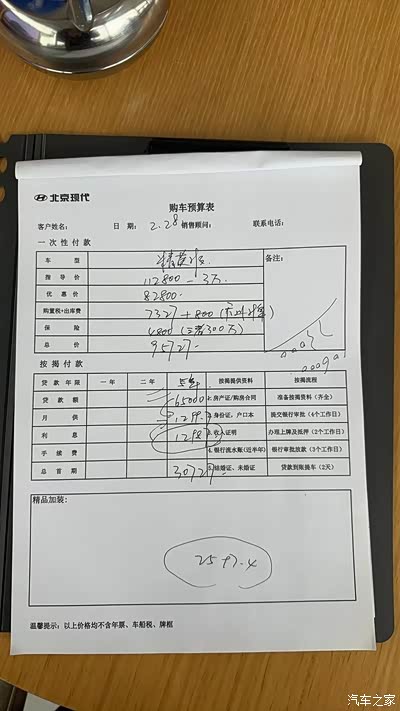 北京现代
购车预算表
客户姓名: 日 期: 2.28 销售顾问: 联系电话:
一次性付款
车 型 精英版 备注:
指 导 价 112800 - 3万
优 惠 价 82800.
购置税+出库费 7327 + 800
保 险 4800 (三者300万)
总 价 95727.
按揭付款
贷 款 年 限 一 年 二 年 5年 按揭提供资料 按揭流程
贷 款 额 65000 2.房产证/购房合同 准备按揭资料(齐全)
月 供 1299. 身份证、户口本 提交银行审批(4个工作日)
利 息 1298 收入证明 办理上牌及抵押(2个工作日)
手 续 费 4.银行流水账(近半年) 银行审批放款(3个工作日)
总 首 期 30727. 结婚证、未婚证 贷款到账提车(2天)
精品加装:
温馨提示:以上价格均不含年票、车船税、牌框
汽车之家